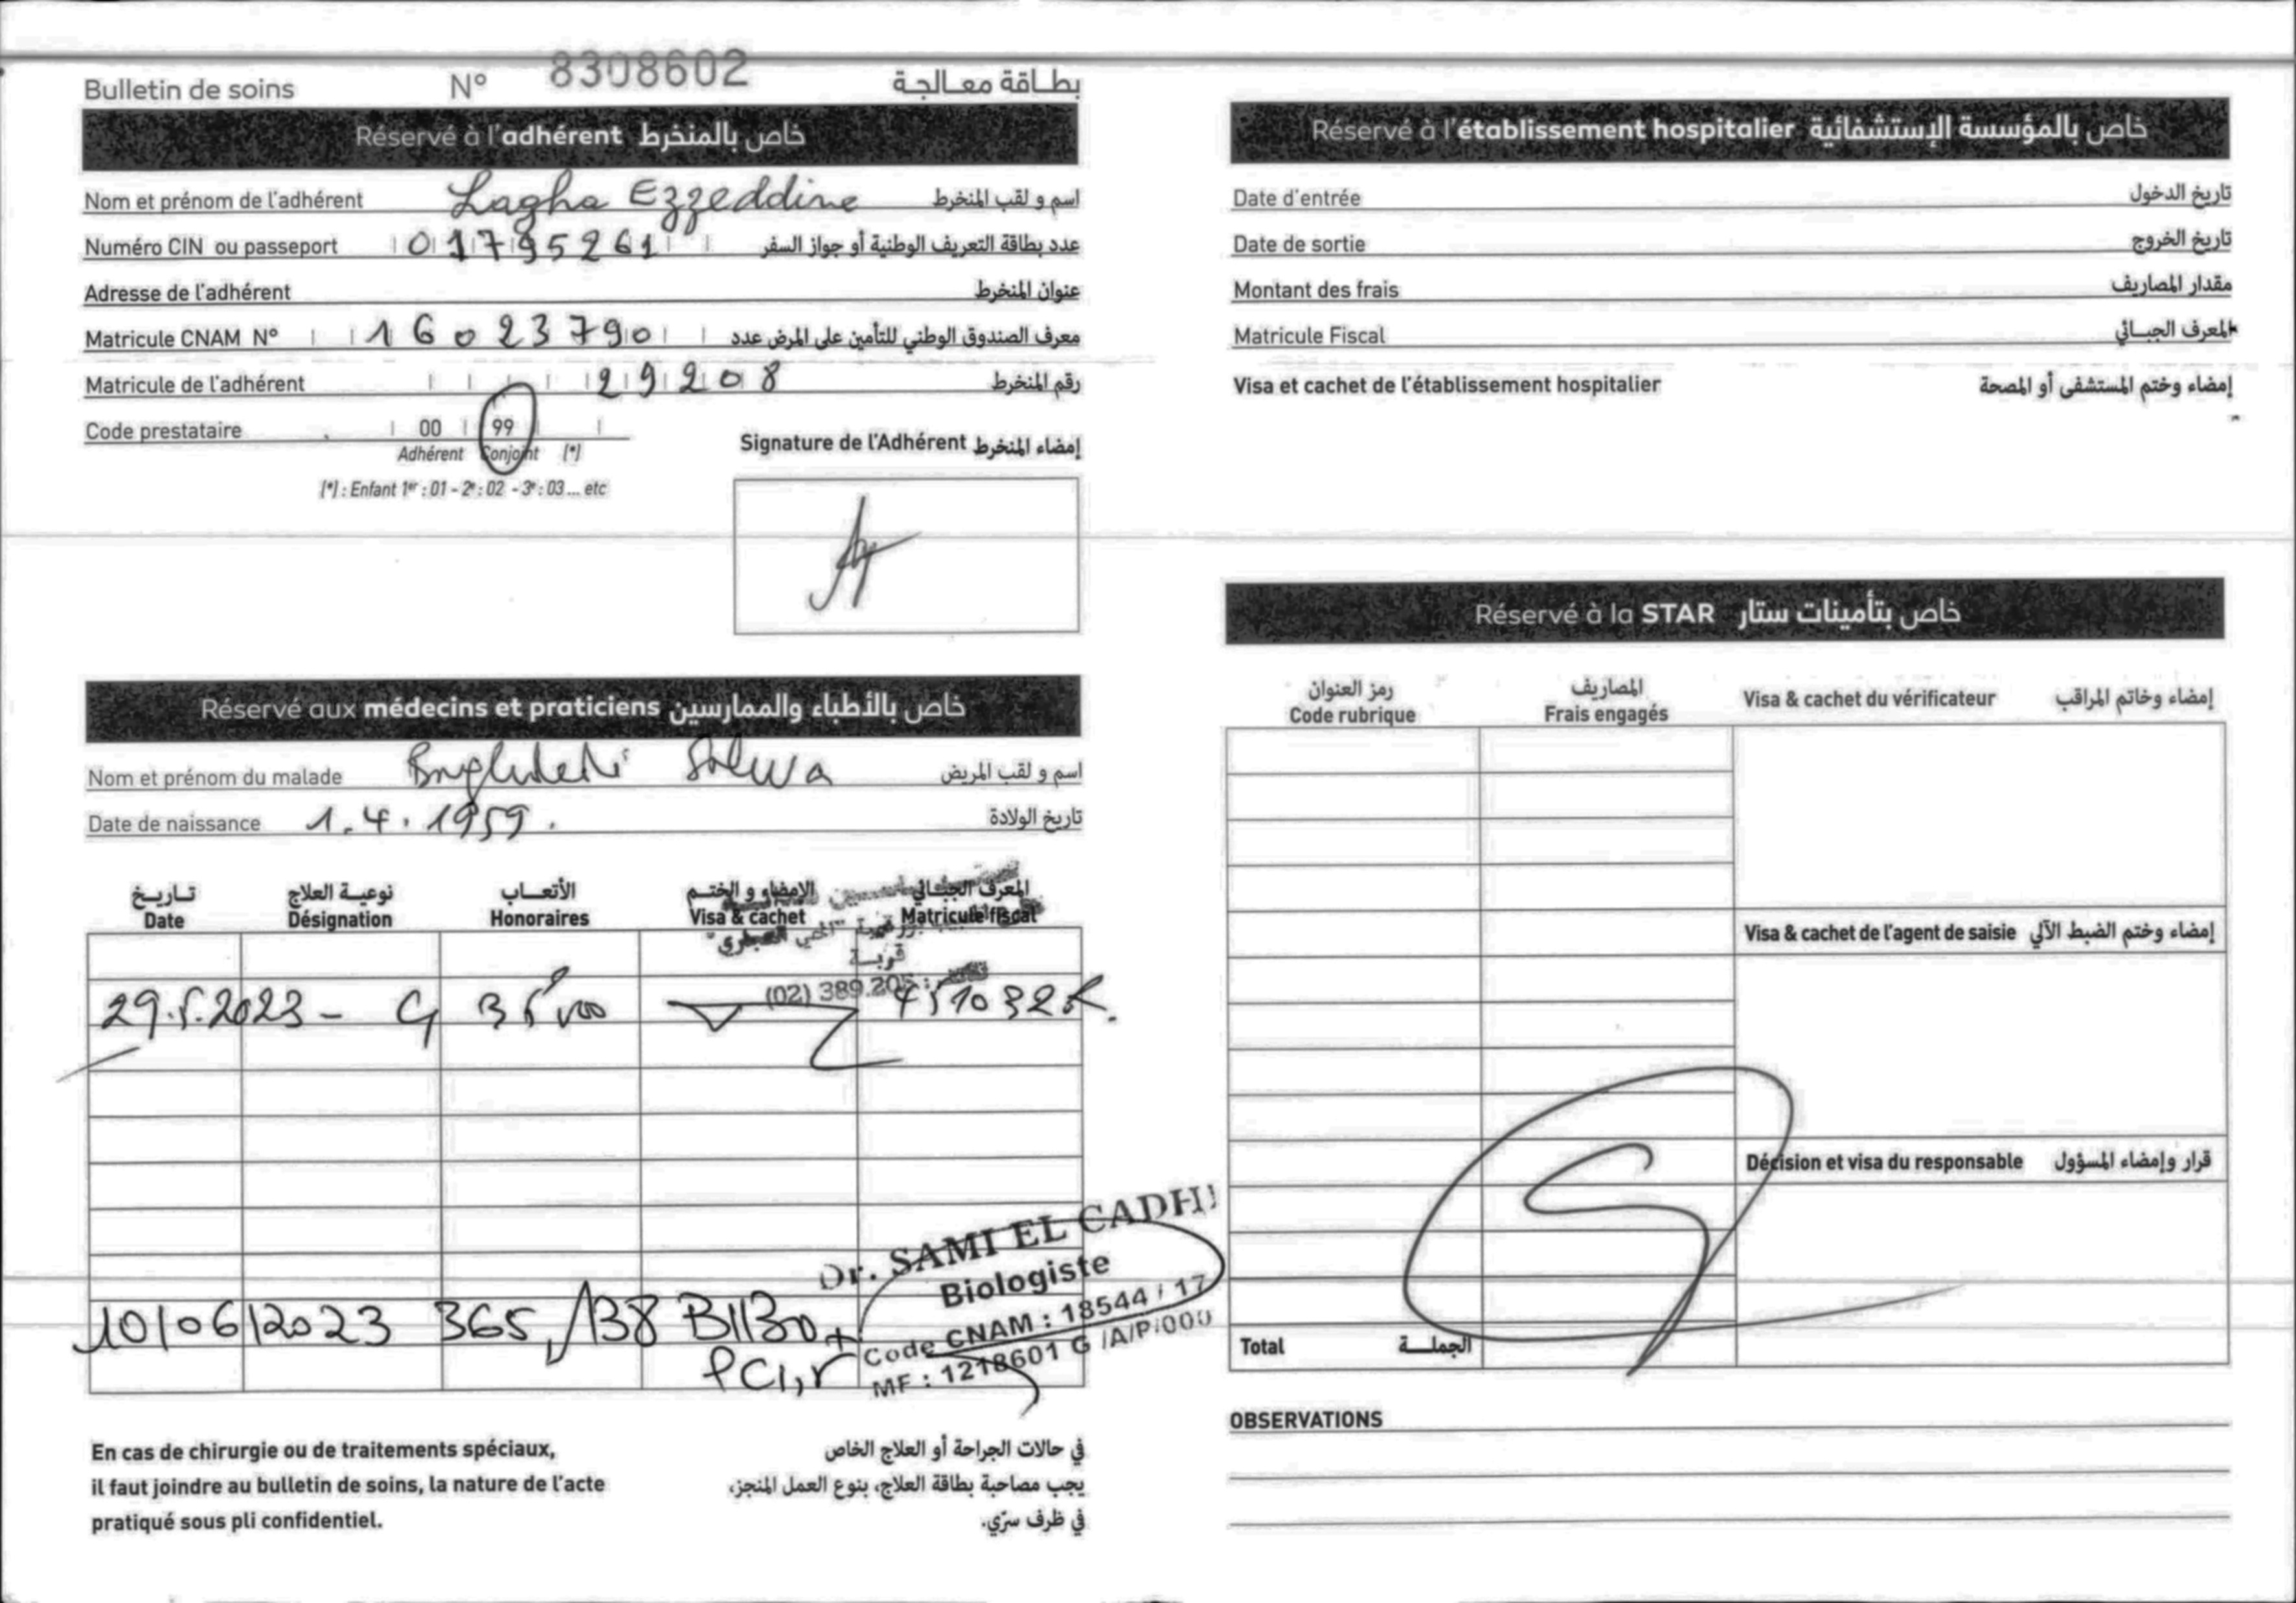 Bulletin de soins N° 8308602 بطاقة معالجة
Réservé à l'adhérent خاص بالمنخرط
Nom et prénom de l'adhérent Lagha Ezzeddine اسم و لقب المنخرط
Numéro CIN ou passeport 01795261 عدد بطاقة التعريف الوطنية أو جواز السفر
Adresse de l'adhérent عنوان المنخرط
Matricule CNAM N° 16023790 معرف الصندوق الوطني للتأمين على المرض عدد
Matricule de l'adhérent 29208 رقم المنخرط
Code prestataire 00 99
Adhérent Conjoint (*)
(*) : Enfant 1er : 01 - 2e : 02 - 3e : 03 ... etc
Signature de l'Adhérent إمضاء المنخرط
Réservé aux médecins et praticiens خاص بالأطباء والممارسين
Nom et prénom du malade Salwa اسم و لقب المريض
Date de naissance 1.4.1959. تاريخ الولادة
تاريخ نوعية العلاج الأتعاب الإمضاء و الختم المعرف الجبائي
Date Désignation Honoraires Visa & cachet Matricule fiscal
قربة
(02) 389.205
29.5.2023 -
10/06/2023 365,138 B1130 +
PC1,r
Dr. SAMI EL CADHI
Biologiste
Code CNAM : 18544 / 17
MF : 1218601 G /A/P/000
En cas de chirurgie ou de traitements spéciaux,
il faut joindre au bulletin de soins, la nature de l'acte
pratiqué sous pli confidentiel.
في حالات الجراحة أو العلاج الخاص
يجب مصاحبة بطاقة العلاج، بنوع العمل المنجز،
في ظرف سرّي.
Réservé à l'établissement hospitalier خاص بالمؤسسة الإستشفائية
Date d'entrée تاريخ الدخول
Date de sortie تاريخ الخروج
Montant des frais مقدار المصاريف
Matricule Fiscal المعرف الجبائي
Visa et cachet de l'établissement hospitalier إمضاء وختم المستشفى أو المصحة
Réservé à la STAR خاص بتأمينات ستار
رمز العنوان المصاريف
Code rubrique Frais engagés Visa & cachet du vérificateur إمضاء وخاتم المراقب
Visa & cachet de l'agent de saisie إمضاء وختم الضبط الآلي
Décision et visa du responsable قرار وإمضاء المسؤول
Total الجملة
OBSERVATIONS